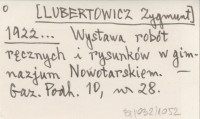 [LUBERTOWICZ Zygmunt]
1922... Wystawa robót
ręcznych i rysunków w gim-
nazjum Nowotarskiem. —
Gaz. Podh. 10, nr 28.